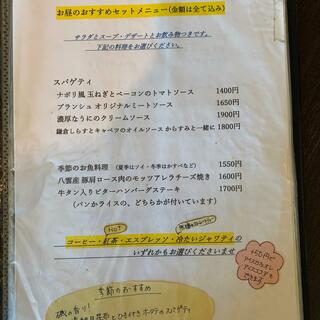 お昼のおすすめセットメニュー(金額は全て込み)
サラダとスープ・デザートとお飲み物つきです。
下記の料理をお選びください。
スパゲティ
ナポリ風 玉ねぎとベーコンのトマトソース 1400円
ブランシュ オリジナルミートソース 1650円
濃厚なうにのクリームソース 1900円
鎌倉しらすとキャベツのオイルソース からすみと一緒に 1800円
季節のお魚料理 (夏季はソイ・冬季はかすべなど) 1550円
八雲産 豚肩ロース肉のモッツアレラチーズ焼き 1600円
牛タン入りビターハンバーグステーキ 1700円
(パンかライスの、どちらかが付いています)
HOT
コーヒー・紅茶・エスプレッソ・冷たいジャワティの
いずれかもお選びくださいませ
+50円で
アイスカフェオレ
アイスココアも
できます!
季節のおすすめ
磯の香り!
ホタテのスパゲティ